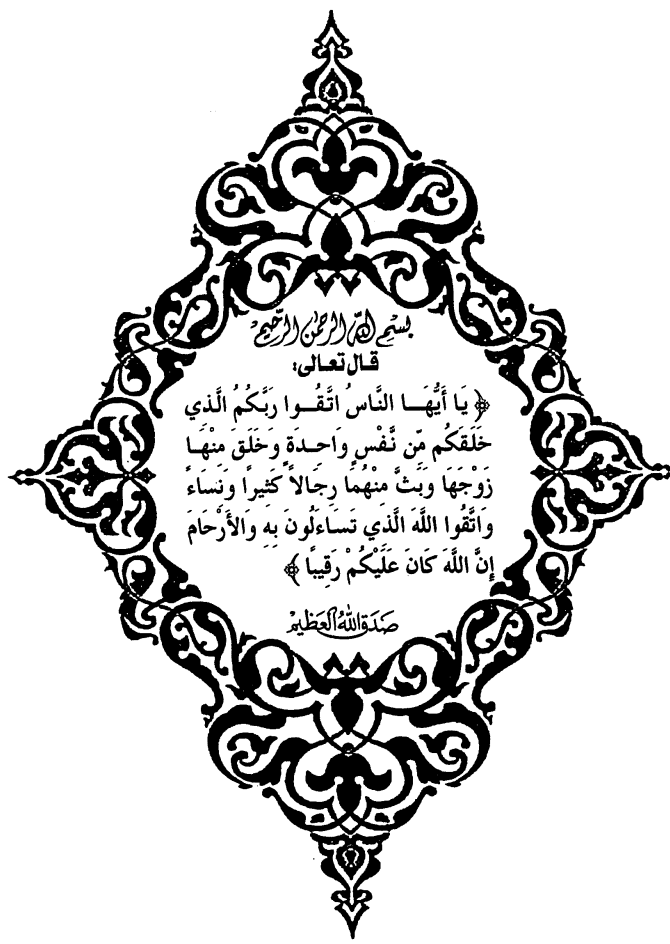 بسم الله الرحمن الرحيم
قال تعالى:
﴿ يَا أَيُّهَا النَّاسُ اتَّقُوا رَبَّكُمُ الَّذِي
خَلَقَكُم مِّن نَّفْسٍ وَاحِدَةٍ وَخَلَقَ مِنْهَا
زَوْجَهَا وَبَثَّ مِنْهُمَا رِجَالاً كَثِيرًا وَنِسَاءً
وَاتَّقُوا اللَّهَ الَّذِي تَسَاءَلُونَ بِهِ وَالأَرْحَامَ
إِنَّ اللَّهَ كَانَ عَلَيْكُمْ رَقِيبًا ﴾
صَدَقَ اللهُ العَظِيمْ